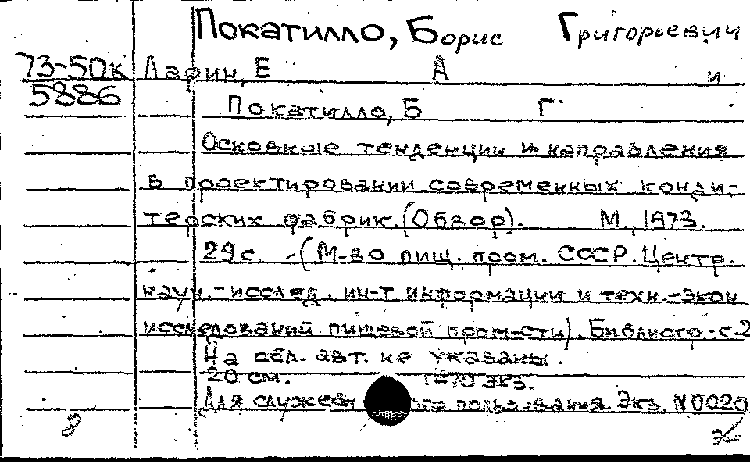 Покатилло, Борис Григорьевич
73-50к Ларин, Е А и
5886
Покатилло, Б Г.
Основные тенденции и направления
в проектировании современных конди-
терских фабрик. (Обзор). М., 1973.
29 с. - (М-во пищ. пром. СССР. Центр.
науч.-исслед. ин-т информации и техн.-экон
исследований пищевой пром-сти). Библиогр.: с. 2
На обл. авт. не указаны.
20 см. экз.
Для пользования. Экз. N0020